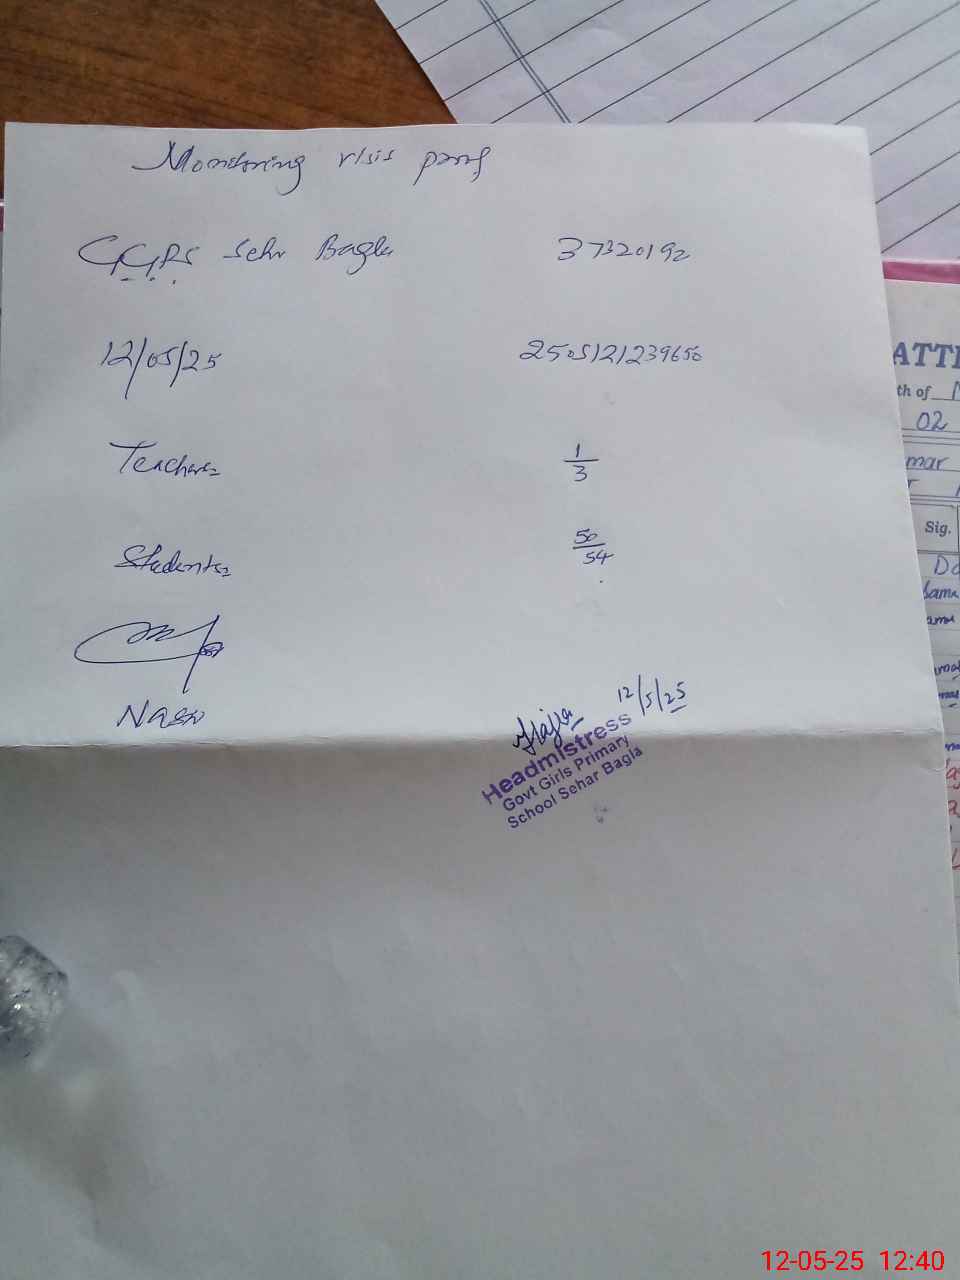 Monitoring visit proof
GGPS Sehr Bagla 37320192
12/05/25 2505121239650
Teachers= 1/3
Students= 50/54
Nasir
12/5/25
Headmistress
Govt Girls Primary
School Sehar Bagla
ATTE
th of
02
mar
Sig.
12-05-25 12:40